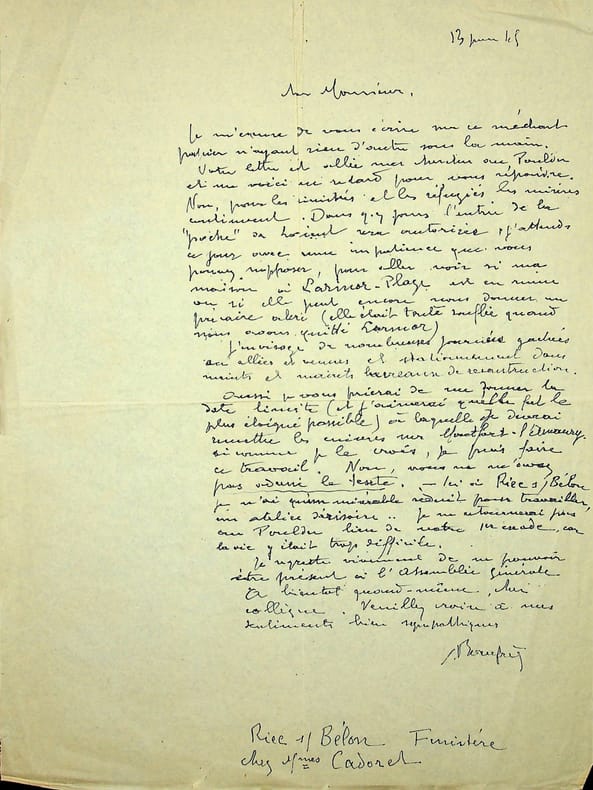 13 juin 45
Cher Monsieur,
Je m'excuse de vous écrire sur ce méchant
papier n'ayant rien d'autre sous la main.
Votre lettre est allée me chercher au Pouldu
et me voici en retard pour vous répondre.
Non, pour les sinistrés et les réfugiés les misères
continuent. Dans qq jours l'entrée de la
"poche" de Lorient sera autorisée, j'attends
ce jour avec une impatience que vous
pouvez supposer, pour aller voir si ma
maison à Larmor-Plage est en ruine
ou si elle peut encore nous donner un
précaire abri (elle était toute soufflée quand
nous avons quitté Larmor)
J'envisage de nombreuses journées gachées
en allées et venues et stationnement dans
maints et maints bureaux de reconstruction.
Aussi je vous prierai de me donner la
date limite (et j'aimerai qu'elle fut la
plus éloignée possible) à laquelle je devrai
remettre les cuivres sur Montfort-l'Amaury.
si comme je le crois, je puis faire
ce travail. Non, vous ne m'avez
pas adressé le texte. — Ici à Riec s/Bélon
je n'ai qu'un misérable réduit pour travailler,
un atelier dérisoire.. je ne retournerai pas
au Pouldu lieu de notre 1er exode, car
la vie y était trop difficile.
Je regrette vivement de ne pouvoir
être présent à l'Assemblée générale
A bientot quand-même, cher
collègue. Veuillez croire à mes
sentiments bien sympathiques
Riec s/ Bélon Finistère
chez Mmes Cadoret